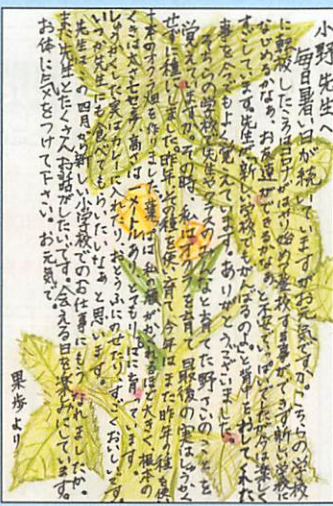 小野先生へ
毎日暑い日が続いていますがお元気ですか。こちらの学校
に転校したころはコロナがはやり始めて登校する事ができず新しい学校に
なじめるかなあ、お友達ができるかなあと不安でいっぱいでしたが今は楽しく
すごしてます。先生が「新しい学校でもがんばるのよ」と背中をおしてくれた
事を今でもよく覚えています。ありがとうございました。
そちらの学校で先生やクラスのみんなと育てた野さいのことを
覚えていますか。その時、私はオクラを育て最後の実はしゅうかく
せずに種にしました。昨年、その種を使い育て、今年はまた昨年の種を使い
本のオクラ畑を作りました。葉っぱは私の顔がかくれるほど大きく、根本の
くきは太さ七センチ、高さは一メートルありとてもりっぱに育っています。
しゅうかくした実はカレーに入れたり、おとうふにのせたり、すごくおいしいです。
いつか先生にも食べてもらいたいなぁと思います。
先生は、この四月から新しい小学校でのお仕事にもうなれましたか。
また先生とたくさんお話がしたいです。会える日を楽しみにしています。
お体に気をつけて下さい。お元気で。
果歩より